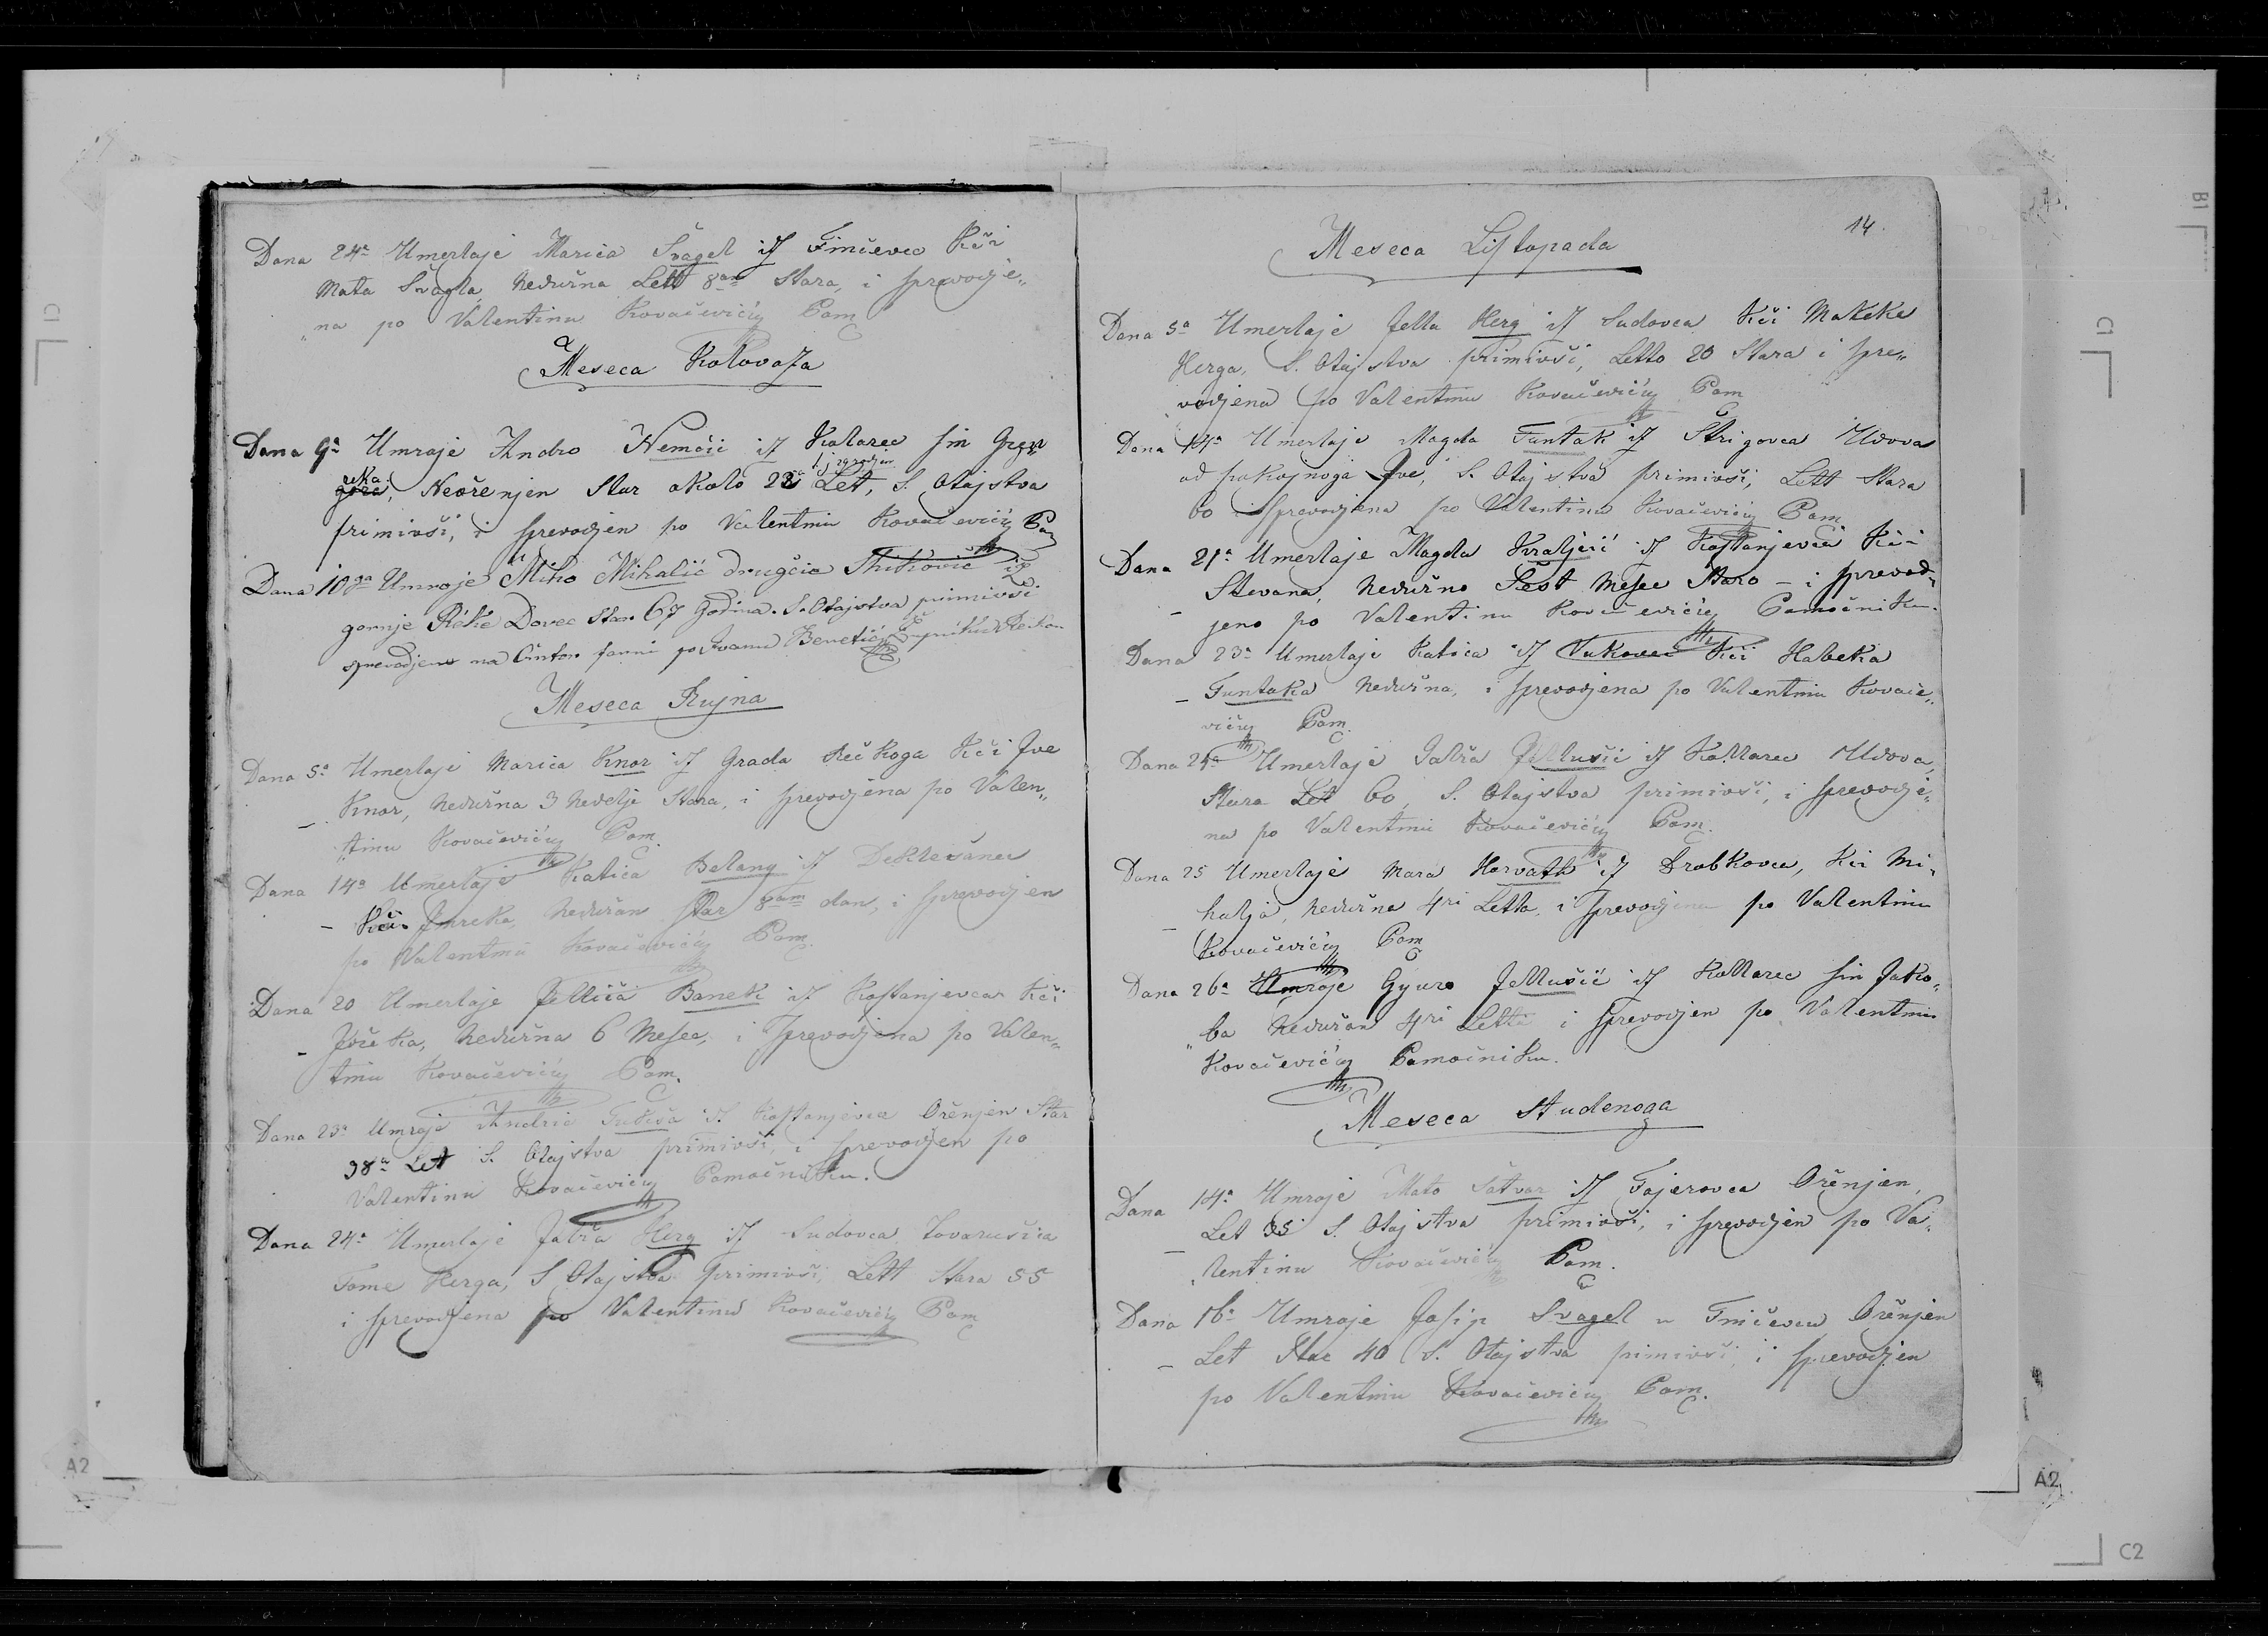 Dana 24a Umerlaje Marica Švagel iz Finčevec Kći
Mata Švagla, Nedužna Lett 8am Stara, i sprevodje„
„na po Valentinu Kovačeviću Pom
Meseca Kolovoza
Dana 9a Umraje Andro Nemčić iz Kalarec sin Gregu
reka, Neoženjen Star okolo 22a Let, S. Otajstva
primivši, i sprevodjen po Valentinu Kovačeviću Pom
Dana 10ga Umroje Miho Mihalić drugčia iz
gornje Reke Dovec star 67 Godina. S. Otajstva primivši
sprevodjen na Cintor farni po Ivanu Benetiću
Meseca Rujna
Dana 5a Umerlaje Marica Knor iz Grada Rečkoga Kći Ive
Knor, Nedužna 3 Nedelje Stara, i sprevodjena po Valen„
„tinu Kovačeviću Pom.
Dana 14a Umerlaje Katica Belang iz Deklešanec
– Kći Jureka, Nedužan Star 8am dan, i sprevodjen
po Valentinu Kovačeviću Pom.
Dana 20 Umerlaje Jellića Banek iz Kostanjevca Kći
– Jožeka, Nedužna 6 Mesec, i sprevodjena po Valen„
tinu Kovačeviću Pom.
Dana 23a Umraje Andria iz Kostanjevca Oženjen Star
38a Let S. Otajstva primivši, i sprevodjen po
Valentinu Kovačeviću Pomočniku.
Dana 24a Umerlaje Jalža Herg iz Sudovca Tovarušica
Tome Herga, S Otajstva primivši, Lett Stara 55
i sprevodjena po Valentinu Kovačeviću Pom
14.
Meseca Listopada
Dana 5a Umerlaje Jella Herg iz Sudovca Kći Mateka
Herga, S. Otajstva primivši, Letto 20 Stara i spre„
„vodjena po Valentinu Kovačeviću Pom
Dana 14a Umerlaje Magda Funtak iz Strigovca Udova
od pokojnoga Ive, S. Otajstva primivši, Lett Stara
60 i sprevodjena po Valentinu Kovačeviću Pom.
Dana 21a Umerlaje Magda Kraljić iz Kostanjevca Kći
Stevana, Nedužno Šest Mesec Staro – i sprevod„
– jeno po Valentinu Kovačeviću Pomočniku.
Dana 23a Umerlaje Katica iz Vukovec Kći Habeka
– Funtaka Nedužna, i sprevodjena po Valentinu Kovače„
vićuy Pom.
Dana 24a Umerlaje Jalža Jellušić iz Kallarec Udova,
Stara Let 60, S. Otajstva primivši, i sprevodje„
na po Valentinu Kovačeviću Pom.
Dana 25 Umerlaje Mara Horvath iz Drobkovca, Kći Mi„
halja, Nedužna 4ri Letta, i sprevodjena po Valentinu
– Kovačeviću Pom
Dana 26a Umraje Gyuro Jellušić iz Kallarec sin Jako„
ba Nedužan 4ri Letta i sprevodjen po Valentinu
„ Kovačeviću Pomočniku.
Meseca Studenoga
Dana 14a Umraje Mato Šatvar iz Fajerovca Oženjen,
– Let 35 S. Otajstva primivši, i sprevodjen po Va„
„lentinu Kovačeviću Pom.
Dana 16a Umraje Josip Švagel u Finčevcu Oženjen
– Let Star 40 S. Otajstva primivši, i sprevodjen
po Valentinu Kovačeviću Pom.
C1
A2
B1
C1
A2
C2